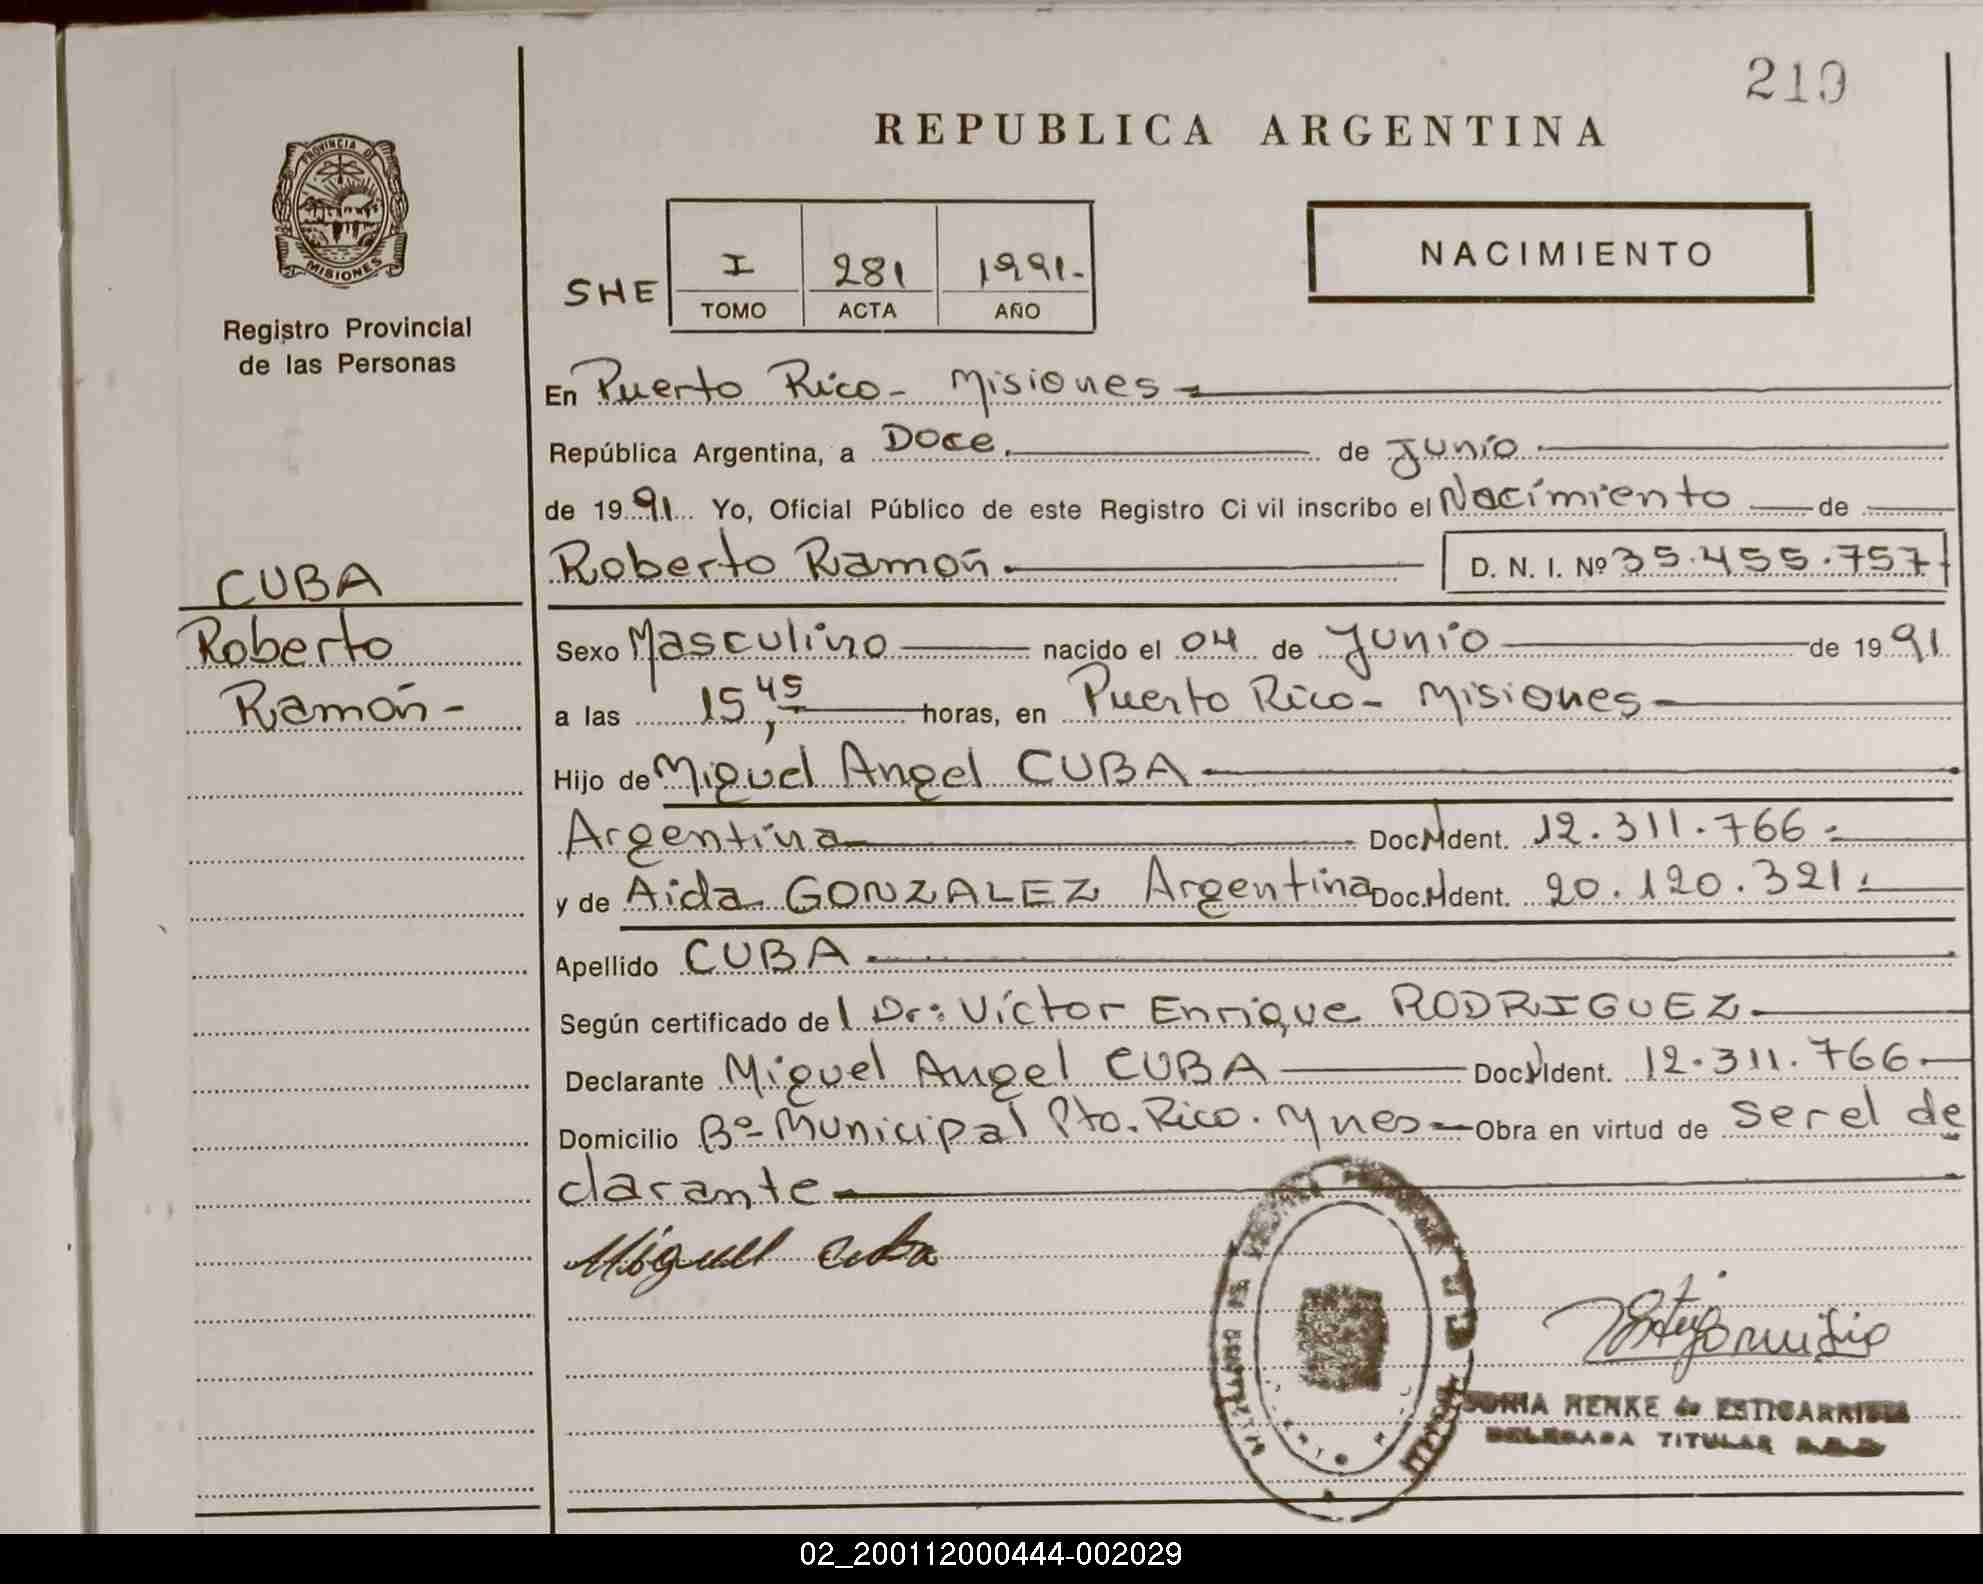 219
REPUBLICA ARGENTINA
PROVINCIA DE
MISIONES
Registro Provincial
de las Personas
SHE I 281 1991.-
TOMO ACTA AÑO
NACIMIENTO
En Puerto Rico - Misiones
República Argentina, a Doce. de Junio
de 1991 Yo, Oficial Público de este Registro Ci vil inscribo el Nacimiento de
Roberto Ramón. D. N. I. Nº 35.455.757
CUBA
Roberto
Ramón-
Sexo Masculino nacido el 04 de Junio de 1991
a las 15,45 horas, en Puerto Rico - Misiones
Hijo de Miguel Angel CUBA
Argentina Doc. Ident. 12.311.766.-
y de Aida GONZALEZ Argentina Doc. Ident. 20.120.321.
Apellido CUBA
Según certificado del Dr: Víctor Enrique RODRIGUEZ.
Declarante Miguel Angel CUBA Doc. Ident. 12.311.766
Domicilio Bº Municipal Pto. Rico. Mnes Obra en virtud de ser el de
clarante
Miguel Cuba
RENKE de
TITULAR
02_200112000444-002029